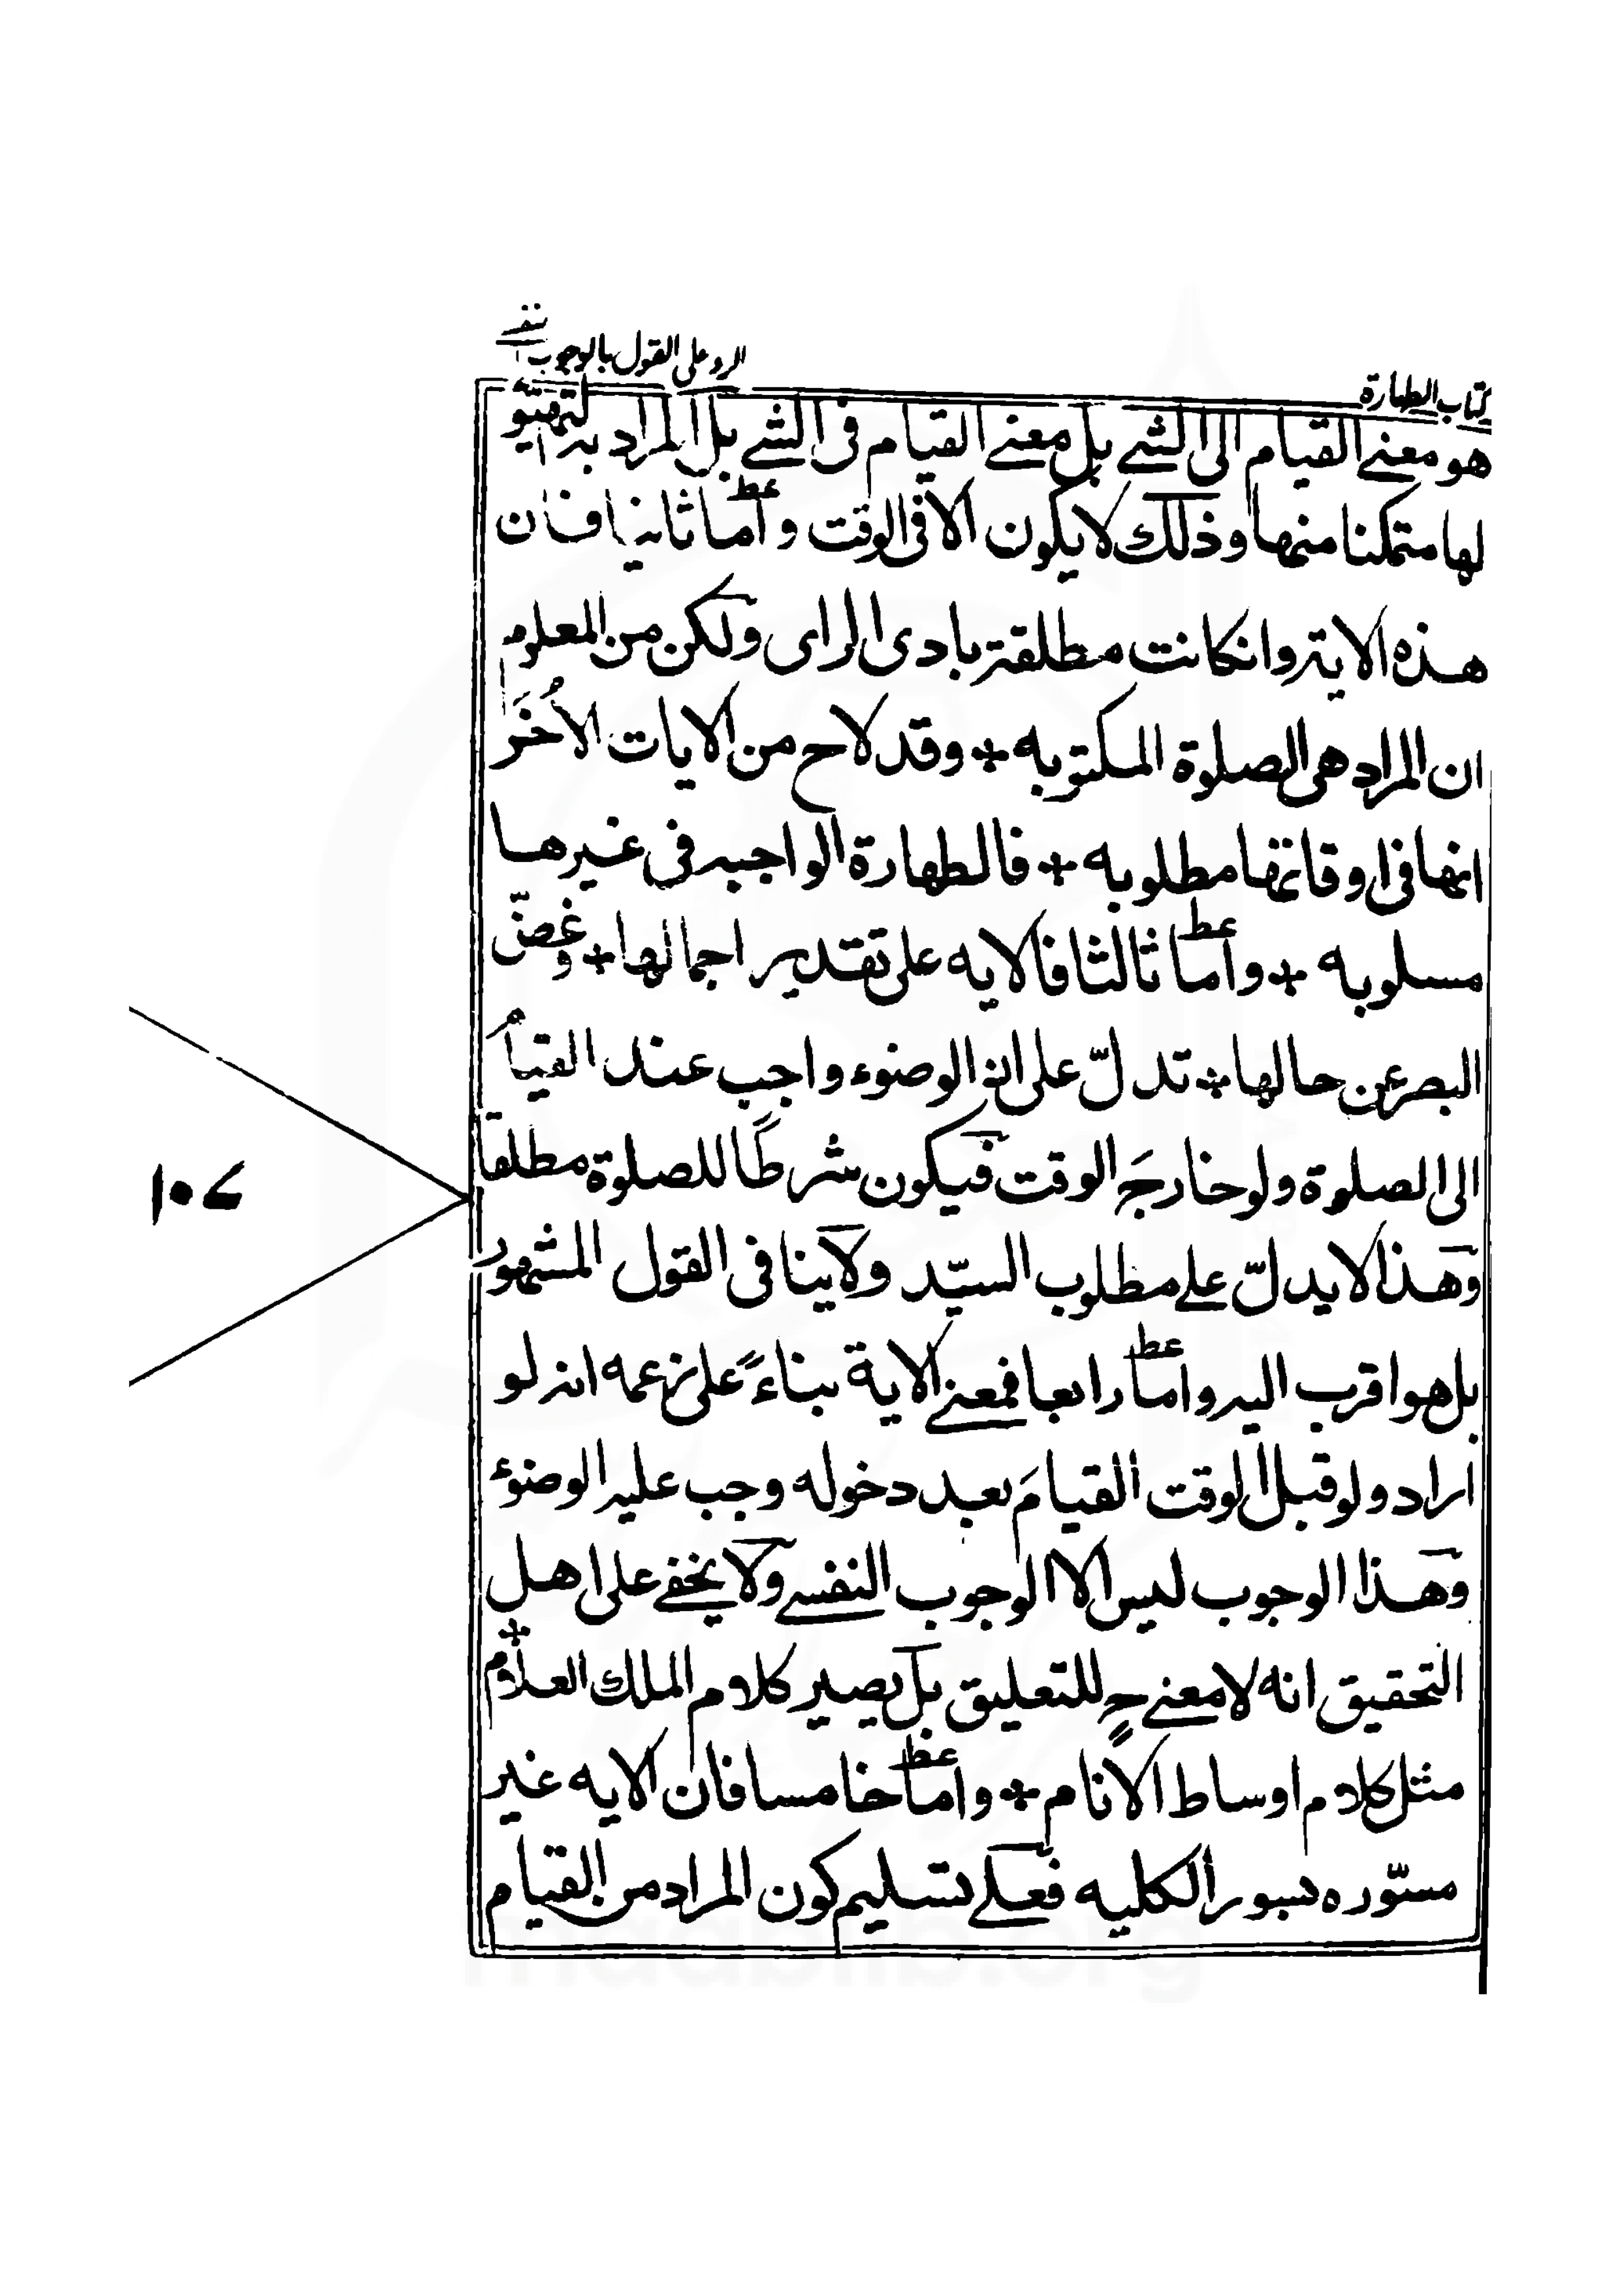 كتاب الطهارة
الرد على القول بالوجوب النفسے
هو معنے القيام الى الشے بل معنے القيام فى الشے بل المراد به التهيؤ
لها متمكنا منها وذلك لا يكون الا فى الوقت و اما ثانيا فان
هذه الاية وانكانت مطلقة بادى الراى ولكن من المعلوم
ان المراد هى الصلوة المكتوبه * وقد لاح من الايات الأُخَر
انها فى اوقاتها مطلوبه * فالطهارة الواجبه فى غيرها
مسلوبه * واما ثالثا فالايه على تقدير اجمالها * وغضّ
البصر عن حالها * تدلّ على ان الوضوء واجب عند القيام
الى الصلوة ولو خارجَ الوقت فيكون شرطًا للصلوة مطلقا
وهذا لا يدلّ علے مطلوب السيّد ولا ينافى القول المشهور
بل هو اقرب اليه واما رابعا فمعنے الاية بناءً على زعمه انه لو
اراد ولو قبل الوقت القيامَ بعد دخوله وجب عليه الوضوء
وهذا الوجوب ليس الا الوجوب النفسے ولا يخفے على اهل
التحقيق انه لا معنے ح للتعليق بل يصير كلام الملك العلام *
مثل كلام اوساط الانام * واما خامسا فان الايه غير
مسوّره بسور الكليه فعلے تسليم كون المراد من القيام
١٠٧